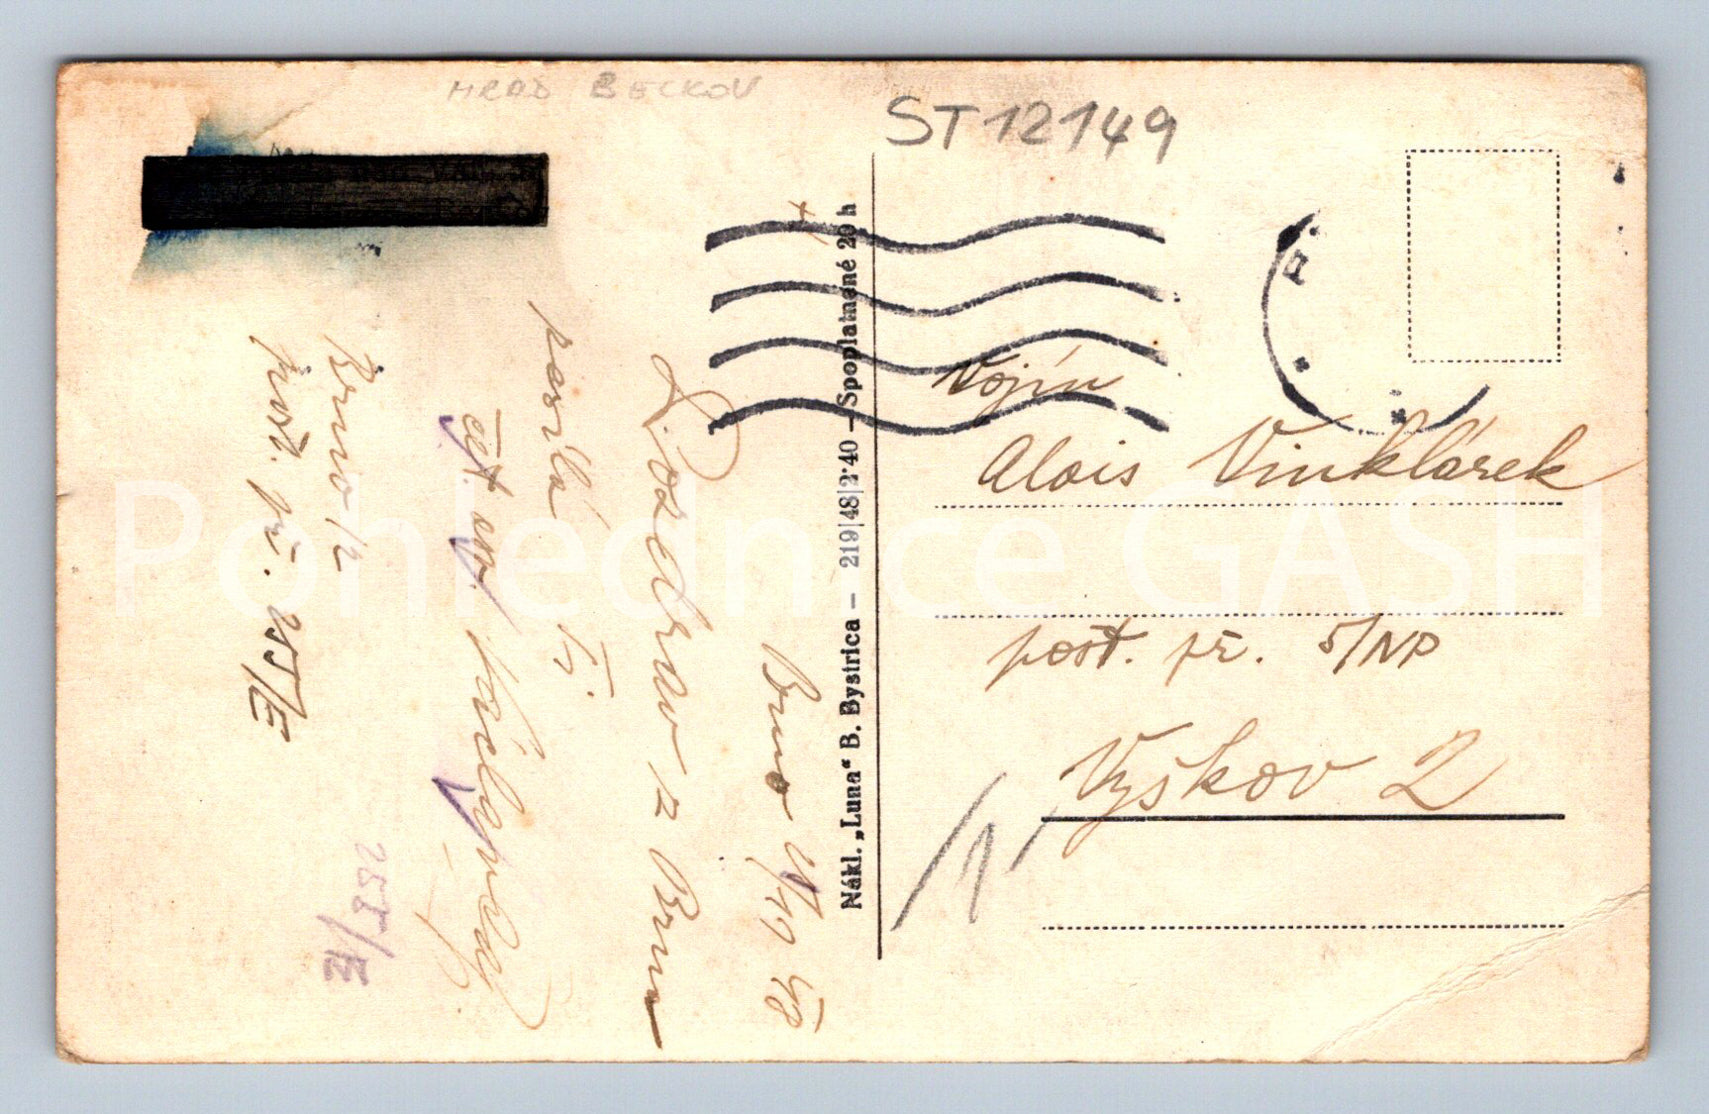 HRAD BECKOV
ST 12149
Brno
Pozdrav z Brna
posílá Ti
čet. asp.
Brno 12
post. př. 25T/E
25T/E
Nákl. „Luna“ B. Bystrica – 219|48|2·40 – Spoplatnené 20 h
Vojín
Alois Vinklárek
post. př. 5/NP
Vyškov 2
Pohlednice GASH